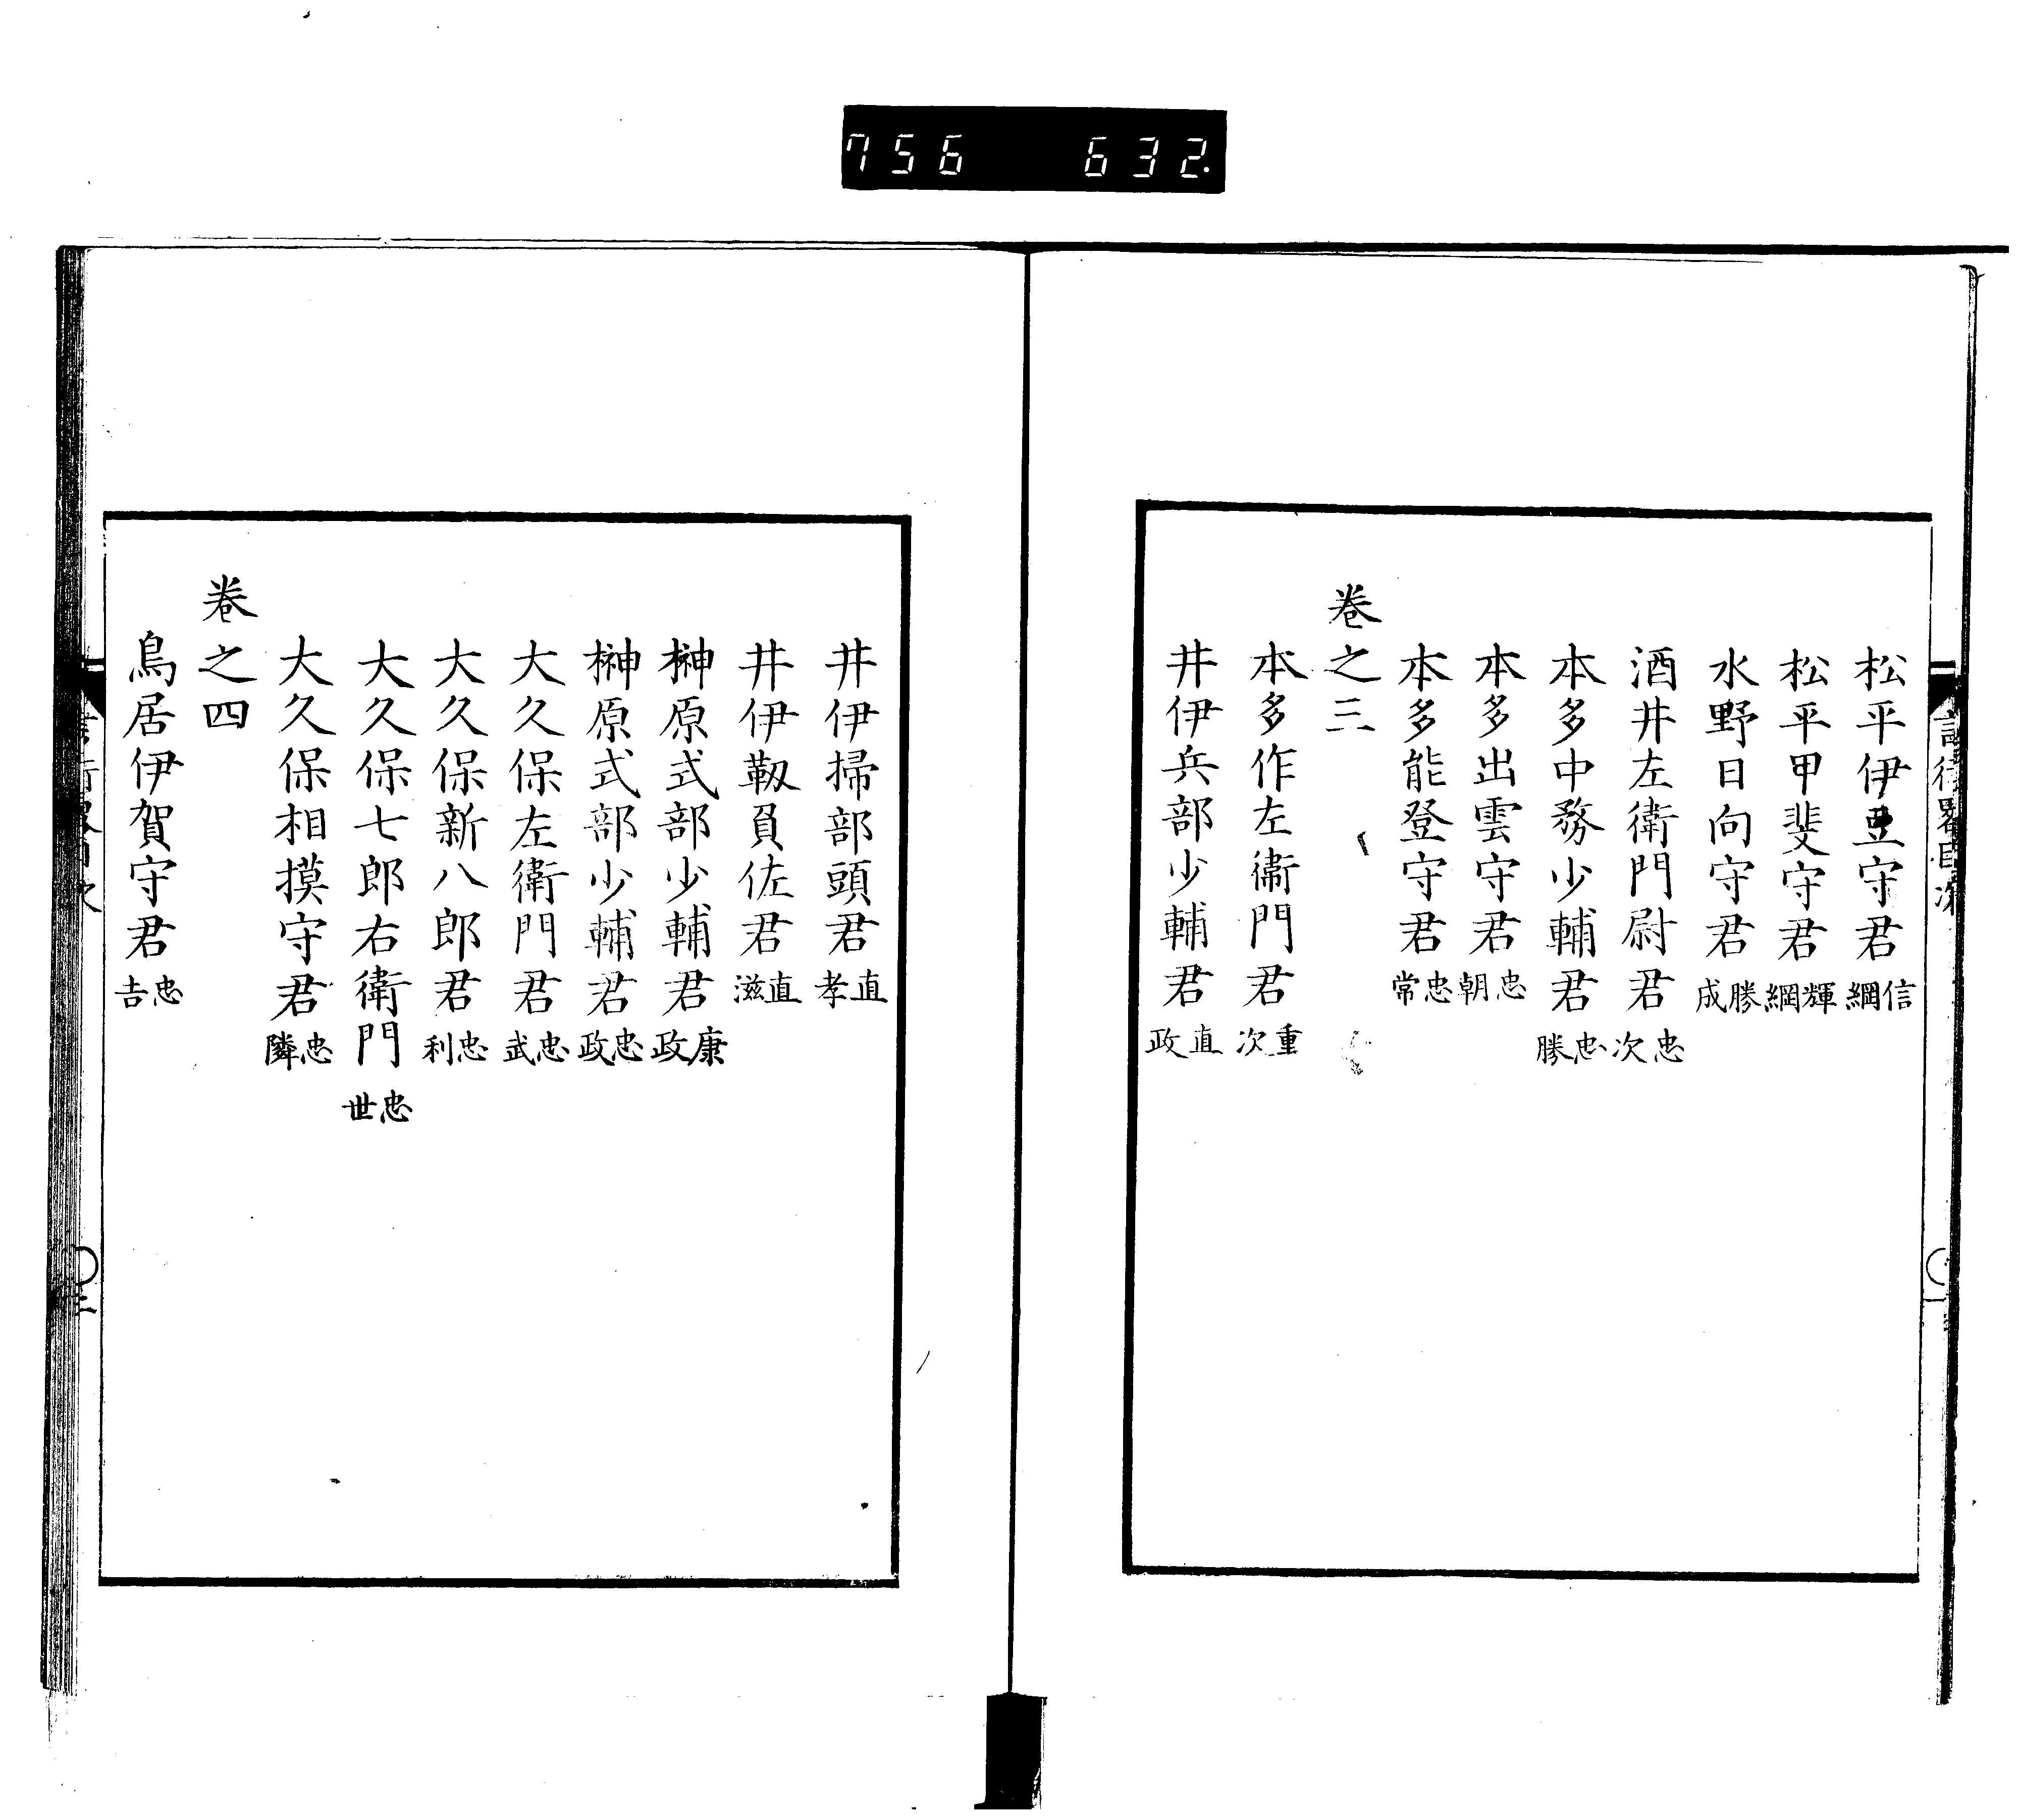 756 632.
松平伊豆守君 信綱
松平甲斐守君 輝綱
水野日向守君 勝成
酒井左衛門尉君 忠次
本多中務少輔君 忠勝
本多出雲守君 忠朝
本多能登守君 忠常
巻之三
本多作左衛門君 重次
井伊兵部少輔君 直政
井伊掃部頭君 直孝
井伊靱負佐君 直滋
榊原式部少輔君 康政
榊原式部少輔君 忠政
大久保左衛門君 忠武
大久保新八郎君 忠利
大久保七郎右衛門 忠世
大久保相摸守君 忠隣
巻之四
鳥居伊賀守君 忠吉